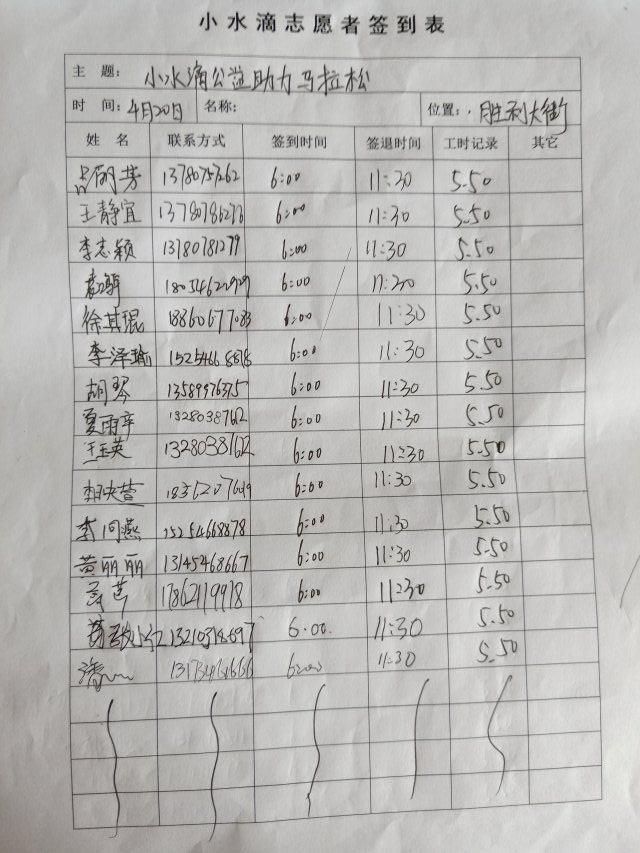 小水滴志愿者签到表
主 题: 小水滴公益助力马拉松
时 间: 4月20日 名称: 位置: 胜利大街
姓 名 联系方式 签到时间 签退时间 工时记录 其它
芳 13780757262 6:00 11:30 5.50
王静宜 6:00 11:30 5.50
李志颖 13780781279 6:00 11:30 5.50
6:00 5.50
徐其琨 18860677083 6:00 11:30 5.50
李泽瑜 6:00 11:30 5.50
胡琴 13589976375 6:00 11:30 5.50
夏雨辛 1328038762 6:00 11:30 5.50
王玉英 1328038162 6:00 11:30 5.50
6:00 11:30 5.50
李问燕 15254668878 6:00 11:30 5.50
黄丽丽 13145468667 6:00 11:30 5.50
17862119918 6:00 11:30 5.50
6:00 11:30 5.50
11:30 5.50